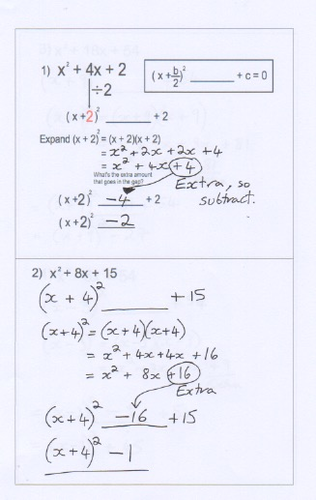 1) x² + 4x + 2
(x + b/2)² ______ + c = 0
÷2
(x+2)² ______ + 2
Expand (x + 2)² = (x + 2)(x + 2)
= x² + 2x + 2x + 4
= x² + 4x + 4
What's the extra amount
that goes in the gap?
Extra, so
subtract.
(x+2)² -4 + 2
(x+2)² -2
2) x² + 8x + 15
(x + 4)² ______ + 15
(x+4)² = (x+4)(x+4)
= x² + 4x + 4x + 16
= x² + 8x + 16
Extra
(x+4)² -16 + 15
(x+4)² - 1